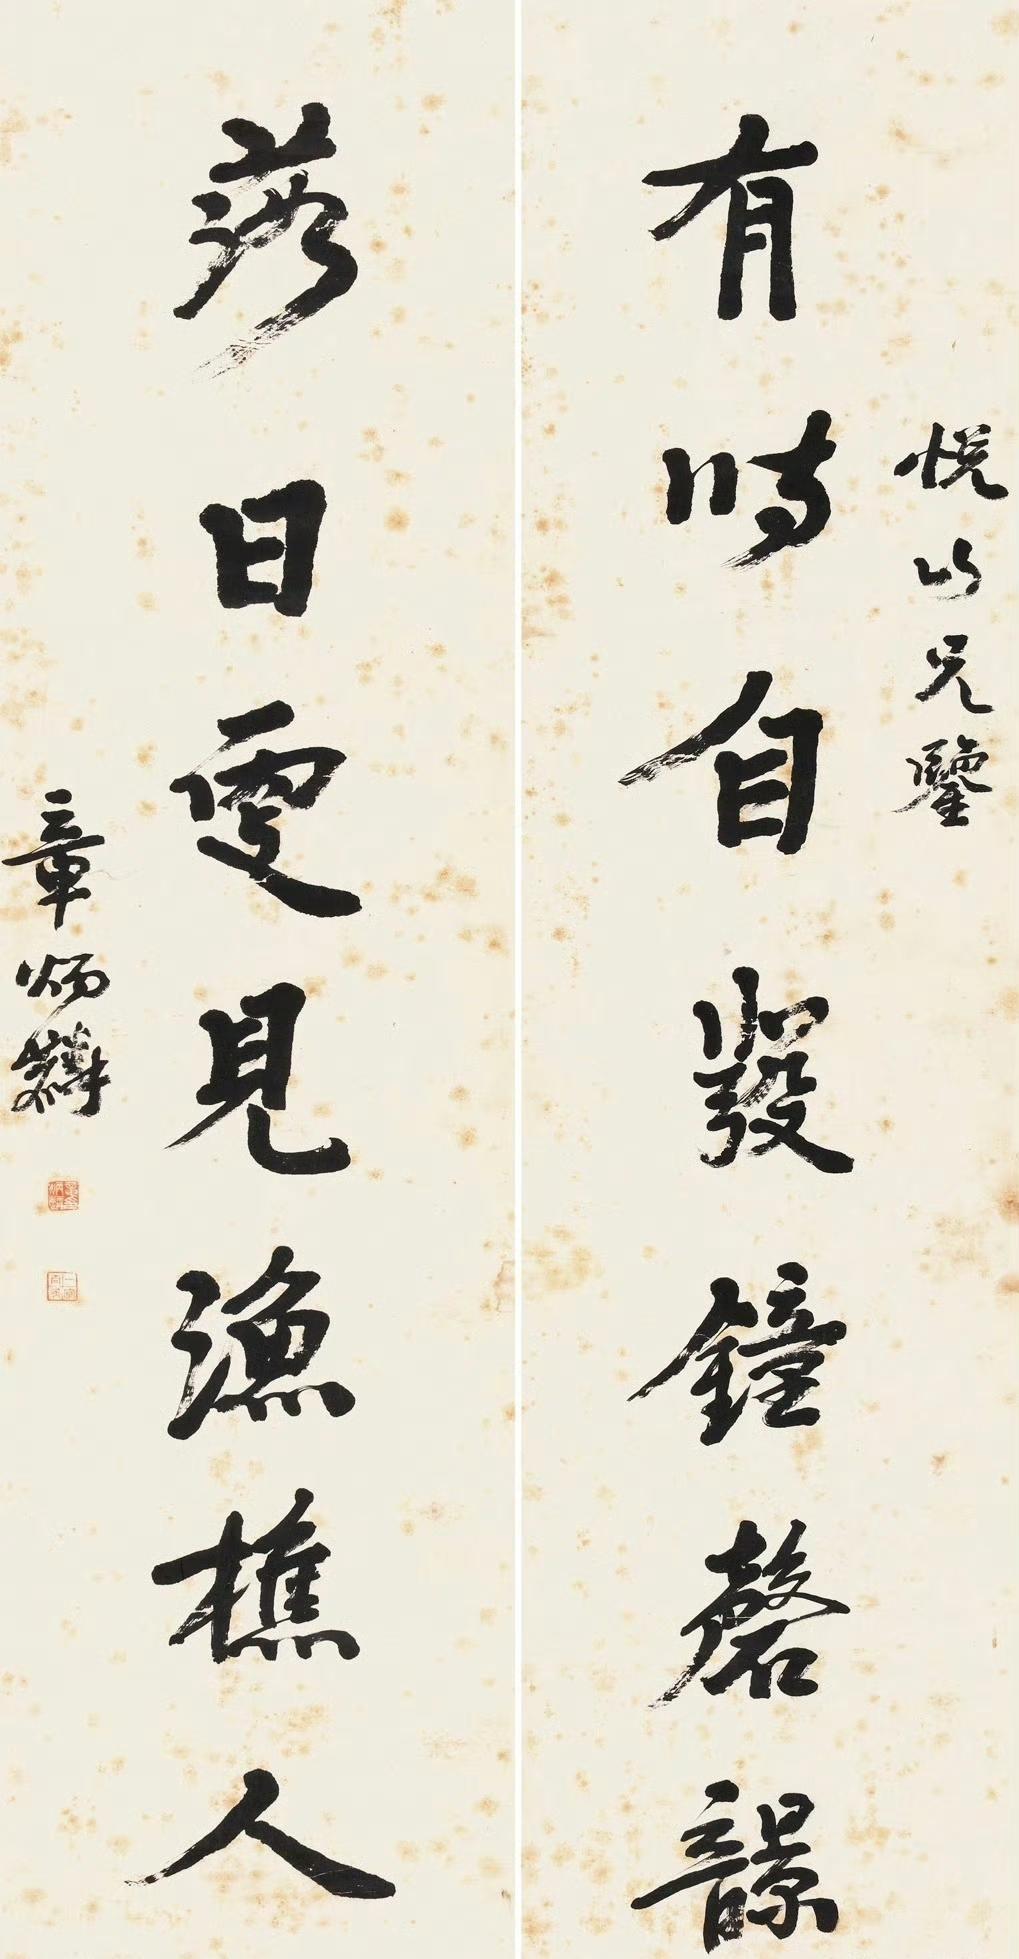 悦山兄鑒
有時自發鐘磬韻
落日更見漁樵人
章炳麟